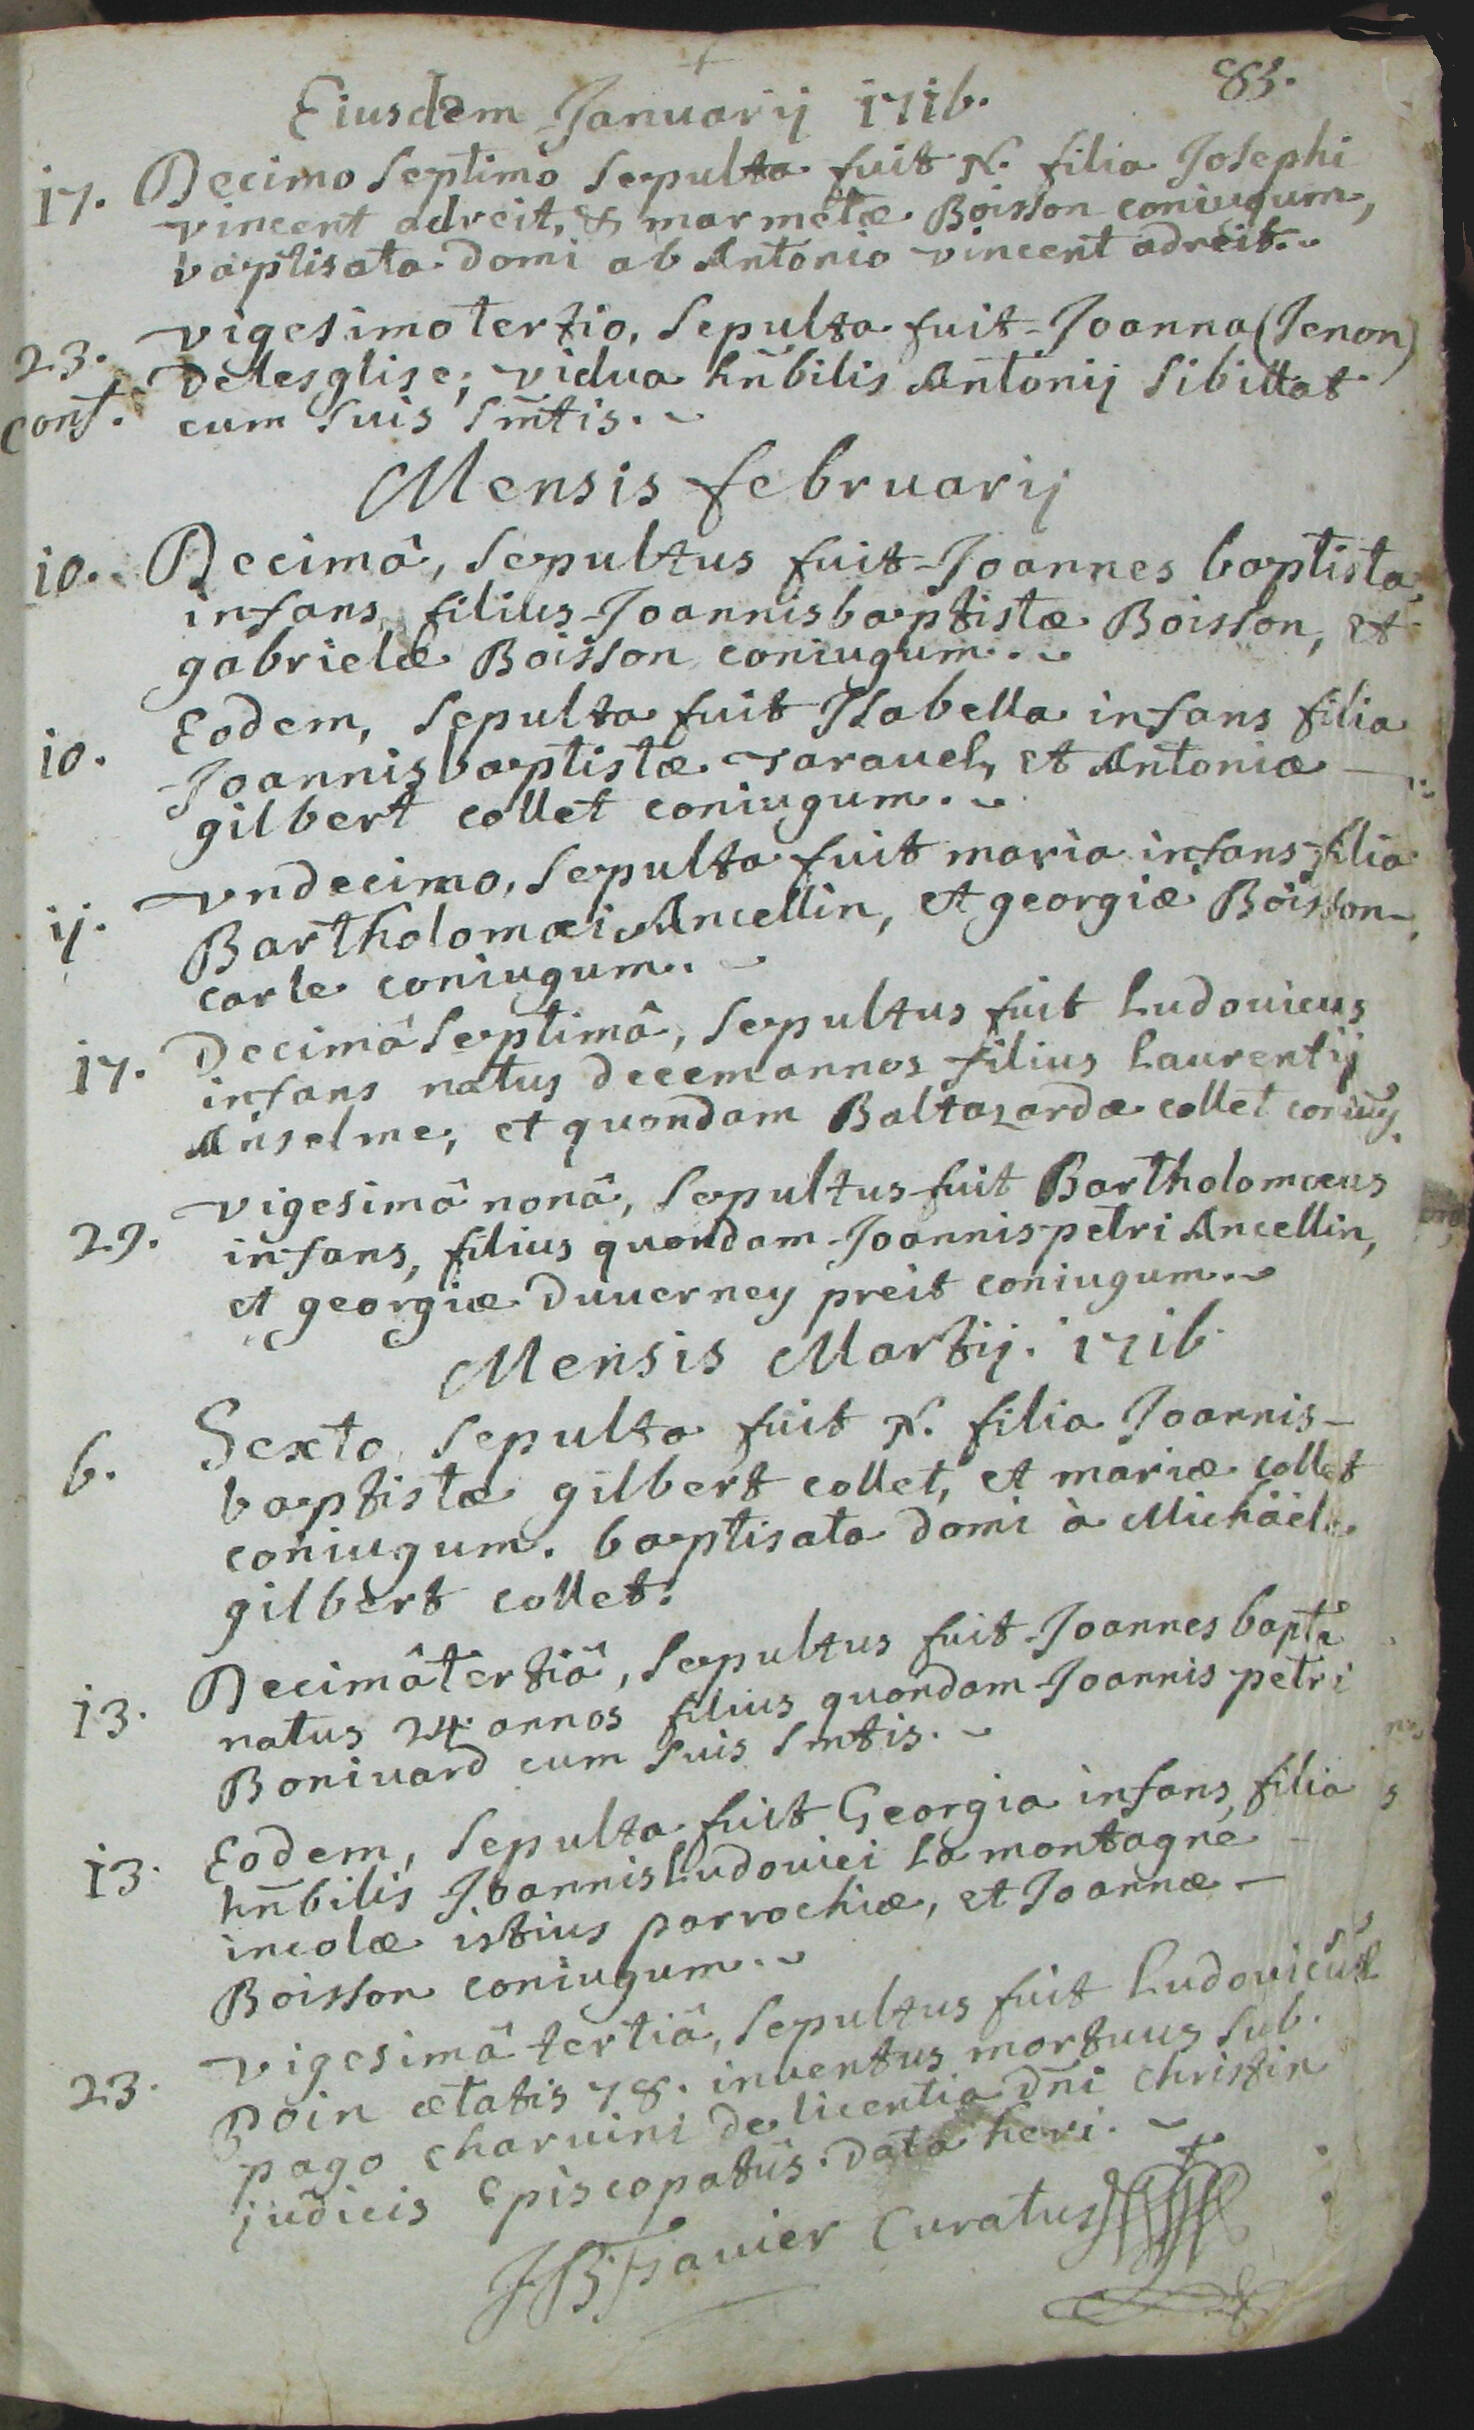 83.
Eiusdem Januarij 1716.
17. Decimo Septimo Sepulta fuit N. filia Josephi
vincent adreit, & marmetæ Boisson coniugum,
baptisata domi ab Antonio vincent adreit.
23. vigesimo tertio, Sepulta fuit Joanna (Jenon)
conf. Delesglise, vidua hnbilis Antonij Sibillat
cum suis Smtis.
Mensis februarij
10. Decimâ, Sepultus fuit Joannes baptista,
infans, filius Joannisbaptistæ Boisson, et
gabrielæ Boisson coniugum.
10. Eodem, Sepulta fuit Isabella infans filia
Joannisbaptistæ Taravel, et Antoniæ
gilbert collet coniugum.
11. vndecimo, Sepulta fuit maria infans filia
Bartholomæi Ancellin, et georgiæ Boisson
carle coniugum.
17. Decimâ Septimâ, Sepultus fuit Ludovicus
infans natus decem annos filius Laurentij
Anselme, et quondam Baltazardæ collet coniug.
29. vigesimâ nonâ, Sepultus fuit Bartholomæus
infans, filius quondam Joannispetri Ancellin,
et georgiæ Duuerney preit coniugum.
Mensis Martij. 1716
6. Sexto Sepulta fuit N. filia Joannis-
baptistæ gilbert collet, et mariæ collet
coniugum. baptisata domi à Michäel
gilbert collet.
13. Decimâ tertiâ, Sepultus fuit Joannes bapta
natus 24 annos filius quondam Joannis petri
Boniuard cum suis Smtis.
13. Eodem, Sepulta fuit Georgia infans, filia
hnbilis JoannisLudouici La montagne
incolæ istius parrochiæ, et Joannæ
Boisson coniugum.
23. vigesimâ tertiâ, Sepultus fuit Ludouicus
Poin ætatis 78. inuentus mortuus sub.
pago charuini de licentia dni christin
judicis Episcopatûs data heri.
JB Curatus